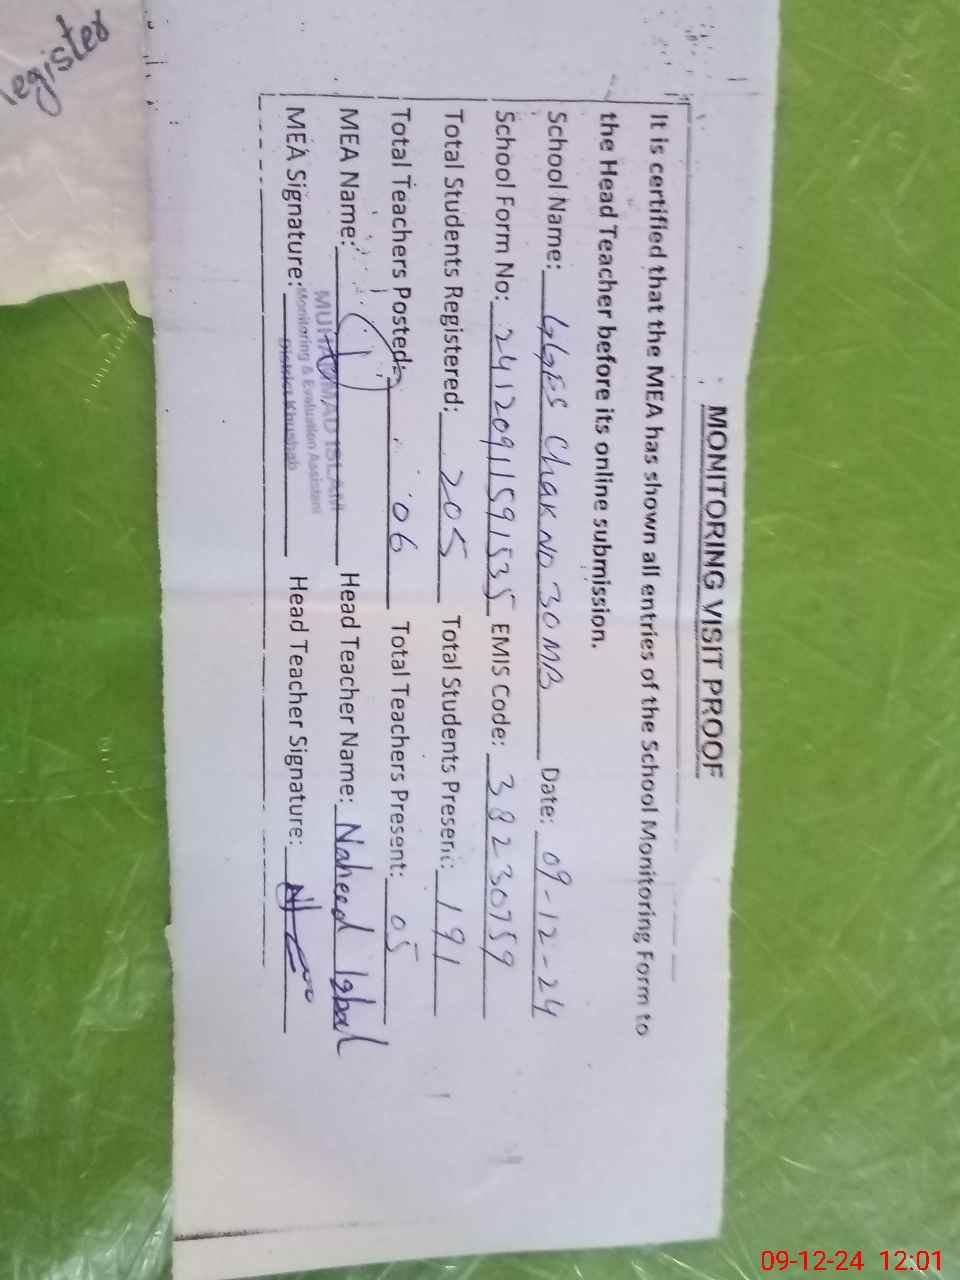 Register
MONITORING VISIT PROOF
It is certified that the MEA has shown all entries of the School Monitoring Form to
the Head Teacher before its online submission.
School Name: GGES Chak No 30 MB Date: 09-12-24
School Form No: 24120911591535 EMIS Code: 38230759
Total Students Registered: 205 Total Students Present: 191
Total Teachers Posted: 06 Total Teachers Present: 05
MEA Name: MUHAMMAD ISLAM Head Teacher Name: Naheed Iqbal
Monitoring & Evaluation Assistant
District Khushab
MEA Signature: Head Teacher Signature:
09-12-24 12:01